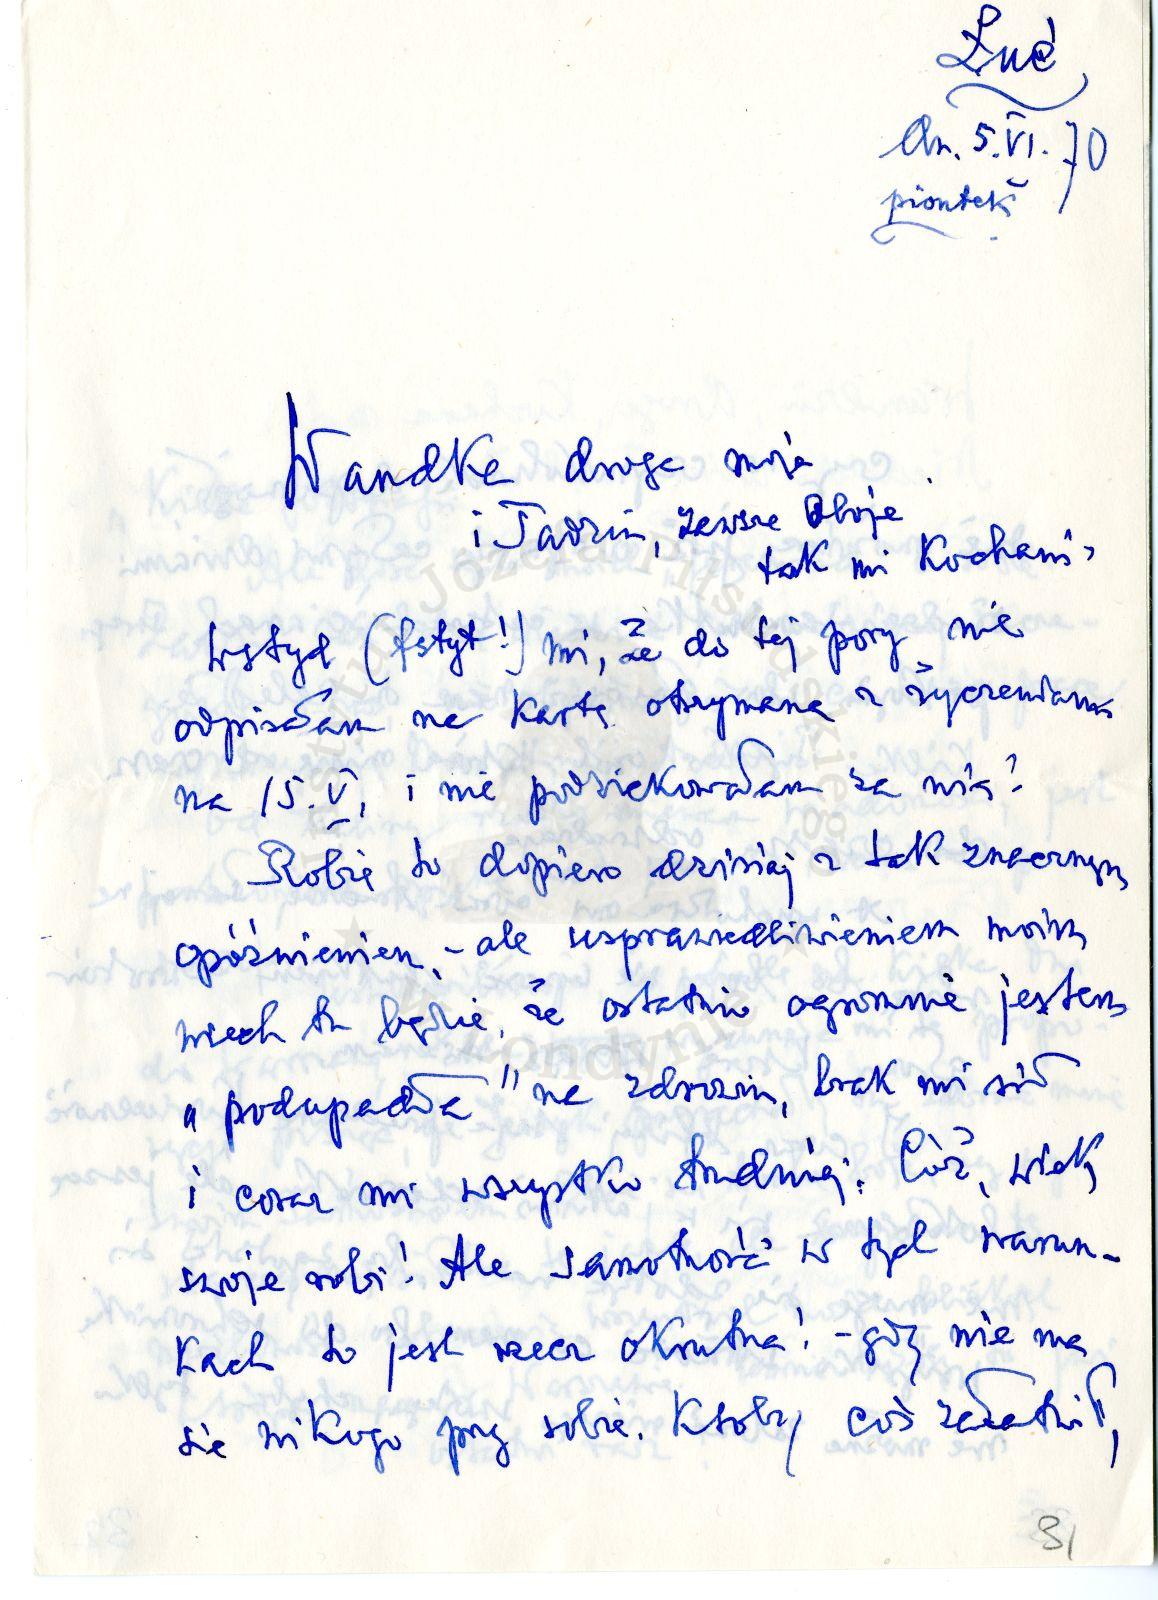 Łuć
dn. 5.VI.70
piontek
Wandke droga moja
i Tadziu, zawsze oboje
tak mi Kochani,
Wstyd (fstyt!) mi, że do tej pory nie
odpisałam na kartę otrzymaną z życzeniami
na 15.V, i nie podziękowałam za nią!
Robię to dopiero dzisiaj z tak znacznym
opóźnieniem, - ale usprawiedliwieniem moim
niech tu będzie, że ostatnio ogromnie jestem
„podupadła" na zdrowiu, brak mi sił
i coraz mi wszystko trudniej. Cóż, wiek
swoje robi! Ale samotność w tych warun-
kach to jest rzecz okrutna! - gdy nie ma
się nikogo przy sobie. Ktoby coś załatwił,
31
Instytut Józefa Piłsudskiego
w Londynie